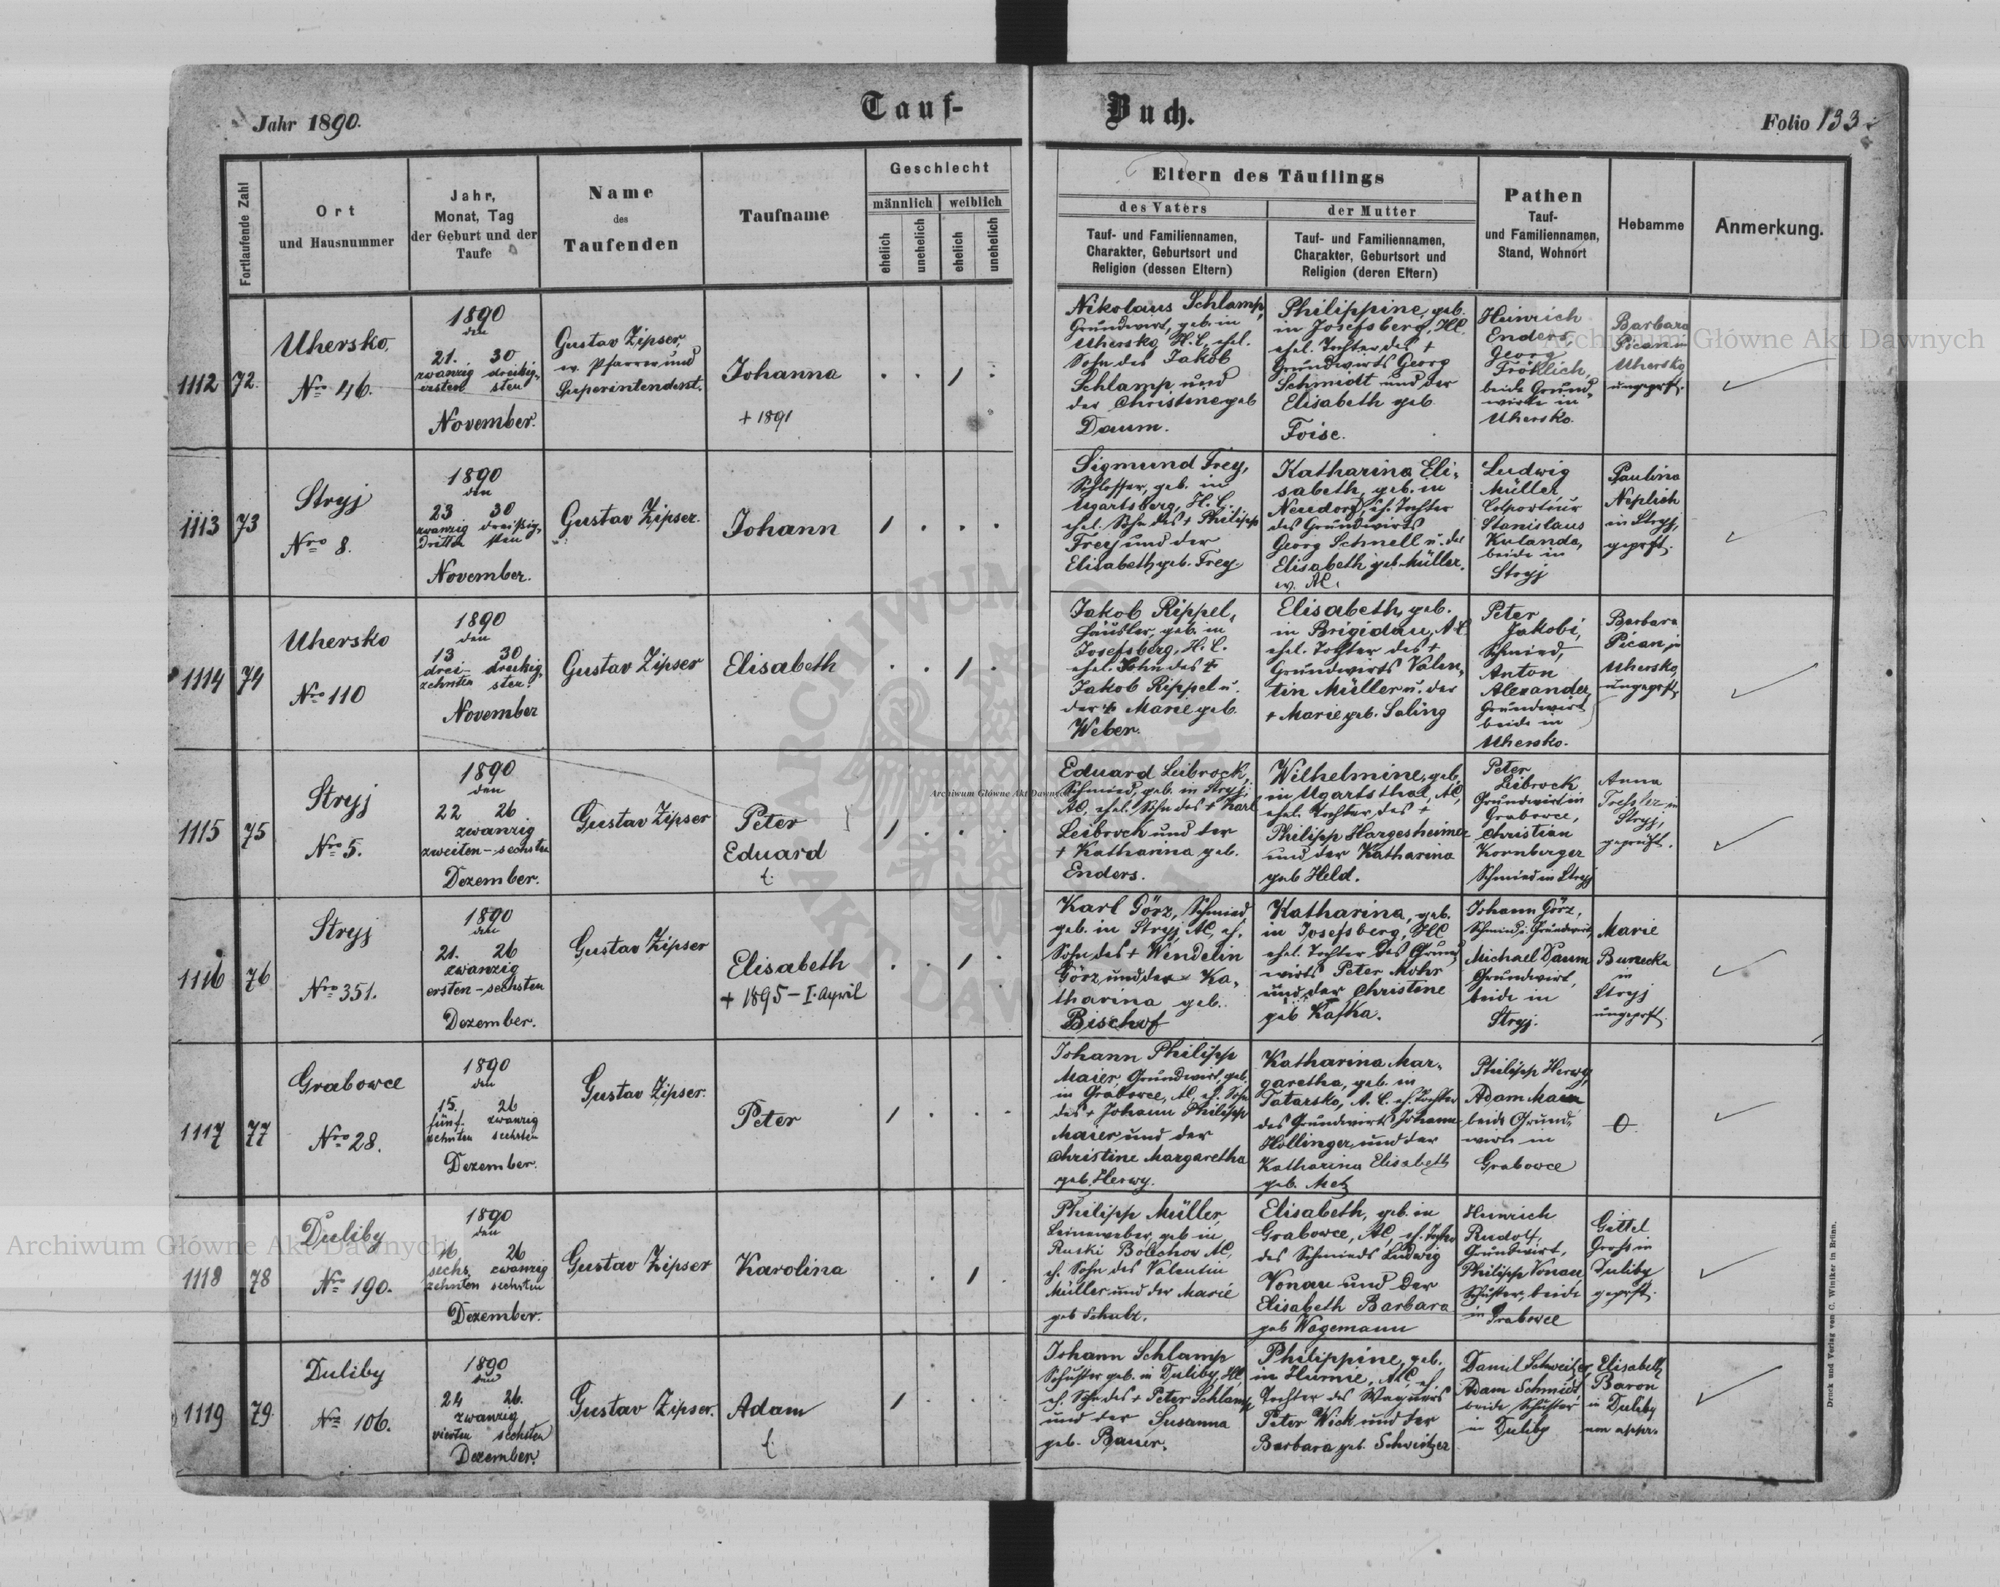 Jahr 1890.
Tauf-
Buch.
Folio 133
Fortlaufende Zahl
Ort
und Hausnummer
Jahr,
Monat, Tag
der Geburt und der
Taufe
Name
des
Taufenden
Taufname
Geschlecht
männlich
weiblich
ehelich
unehelich
ehelich
unehelich
Eltern des Täuflings
des Vaters
Tauf- und Familiennamen,
Charakter, Geburtsort und
Religion (dessen Eltern)
der Mutter
Tauf- und Familiennamen,
Charakter, Geburtsort und
Religion (deren Eltern)
Pathen
Tauf-
und Familiennamen,
Stand, Wohnort
Hebamme
Anmerkung.
1112
72.
Uhersko,
Nro 46.
1890
den
21. 30
zwanzig dreißig-
ersten sten
November.
Gustav Zipser,
ev. Pfarrer und
Superintendent.
Johanna
+ 1891
Nikolaus Schlamp,
Grundwirt, geb. in
Uhersko, H.C., ehel.
Sohn des Jakob
Schlamp und
der Christine geb
Daum.
Philippine, geb.
in Josefsberg, HC.
ehel. Tochter des +
Grundwirts Georg
Schmidt und der
Elisabeth geb.
Foise.
Heinrich
Enders,
Georg
Fröhlich,
beide Grund-
wirte in
Uhersko.
Barbara
Pican in
Uhersko,
ungeprft.
1113
73
Stryj
Nro 8.
1890
den
23 30
zwanzig dreißig-
dritten sten
November.
Gustav Zipser.
Johann
Sigmund Frey,
Schlosser, geb. in
Ugartsberg, H.C.,
ehel. Sohn des + Philipp
Frey und der
Elisabeth geb. Frey.
Katharina Eli-
sabeth, geb. in
Neudorf, eh. Tochter
des Grundwirts
Georg Schnell u. der
Elisabeth geb. Müller.
ev. AC.
Ludwig
Müller
Colporteur
Stanislaus
Kulanda,
beide in
Stryj
Paulina
Neplich
in Stryj,
geprft.
1114
74
Uhersko
Nro 110
1890
den
13 30
drei- dreißig-
zehnten sten.
November
Gustav Zipser
Elisabeth
Jakob Rippel,
Häusler, geb. in
Josefsberg, H.C.
ehel. Sohn des +
Jakob Rippel u.
der + Marie geb.
Weber.
Elisabeth, geb.
in Brigidau, A.C.
ehel. Tochter des +
Grundwirts Valen-
tin Müller u. der
+ Marie geb. Saling
Peter
Jakobi,
Schmied,
Anton
Alexander,
Grundwirt
beide in
Uhersko.
Barbara
Pican in
Uhersko,
ungeprft.
1115
75
Stryj
Nro 5.
1890
den
22 26
zwanzig
zweiten – sechsten
Dezember.
Gustav Zipser
Peter
Eduard
t.
Eduard Leibrock,
Schmied, geb. in Stryj,
AC, ehel. Sohn des + Karl
Leibrock und der
+ Katharina geb.
Enders.
Wilhelmine, geb.
in Ugartsthal, AC,
ehel. Tochter des +
Philipp Hargesheimer
und der Katharina
geb Held.
Peter
Leibrock
Grundwirt in
Grabowce,
Christian
Kornberger
Schmied in Stryj
Anna
in
Stryj,
geprüft.
1116
76
Stryj
Nro 351.
1890
den
21. 26
zwanzig
ersten – sechsten
Dezember.
Gustav Zipser
Elisabeth
+ 1895 – I. April
Karl Görz, Schmied
geb. in Stryj, AC, eh.
Sohn des + Wendelin
Görz und der Ka-
tharina geb.
Bischof
Katharina, geb.
in Josefsberg, HC
ehel. Tochter des Grund
wirts Peter Mohr
und der Christine
geb Kafka.
Johann Görz,
Schmied u. Grundwirt,
Michael Daum
Grundwirt,
beide in
Stryj.
Marie
Bunecka
in
Stryj
ungeprft.
1117
77
Grabowce
Nro 28.
1890
den
15. 26
fünf- zwanzig
zehnten sechsten
Dezember.
Gustav Zipser.
Peter
Johann Philipp
Maier, Grundwirt, geb.
in Grabowce, AC, eh. Sohn
des + Johann Philipp
Maier und der
Christine Margaretha
geb. Herwy.
Katharina Mar-
garetha, geb. in
Tatarsko, A.C. eh. Tochter
des Grundwirts Johann
Hollinger und der
Katharina Elisabeth
geb. Metz
Philipp Herwy,
Adam Maier
beide Grund-
wirte in
Grabowce
0
1118
78
Duliby
Nro 190.
1890
den
16. 26
sechs- zwanzig
zehnten sechsten
Dezember.
Gustav Zipser
Karolina
Philipp Müller
Leineweber, geb in
Ruski Bolechov AC,
eh. Sohn des Valentin
Müller und der Marie
geb Schulz.
Elisabeth, geb. in
Grabowce, AC, eh. Tochter
des Schmieds Ludwig
Vonau und der
Elisabeth Barbara
geb Wagemann
Heinrich
Rudolf,
Grundwirt,
Philipp Vonau,
Schuster, beide
in Grabowce
Gittel
Gross in
Duliby
geprft.
1119
79
Duliby
Nro 106.
1890
den
24 26.
zwanzig
vierten sechsten
Dezember.
Gustav Zipser.
Adam
t.
Johann Schlamp
Schuster geb. in Duliby, HC
eh. Sohn des + Peter Schlamp
und der Susanna
geb. Bauer.
Philippine, geb.
in Hurnie, AC, eh.
Tochter des Wagners
Peter Wick und der
Barbara geb. Schweitzer
Daniel Schweitzer,
Adam Schmidt,
beide Schuster
in Duliby
Elisabeth
Baron
in Duliby
non appr.
Druck und Verlag von C. Winiker in Brünn.
Archiwum Główne Akt Dawnych
Archiwum Główne Akt Dawnych
Archiwum Główne Akt Dawnych
ARCHIWUM
AKT DAW